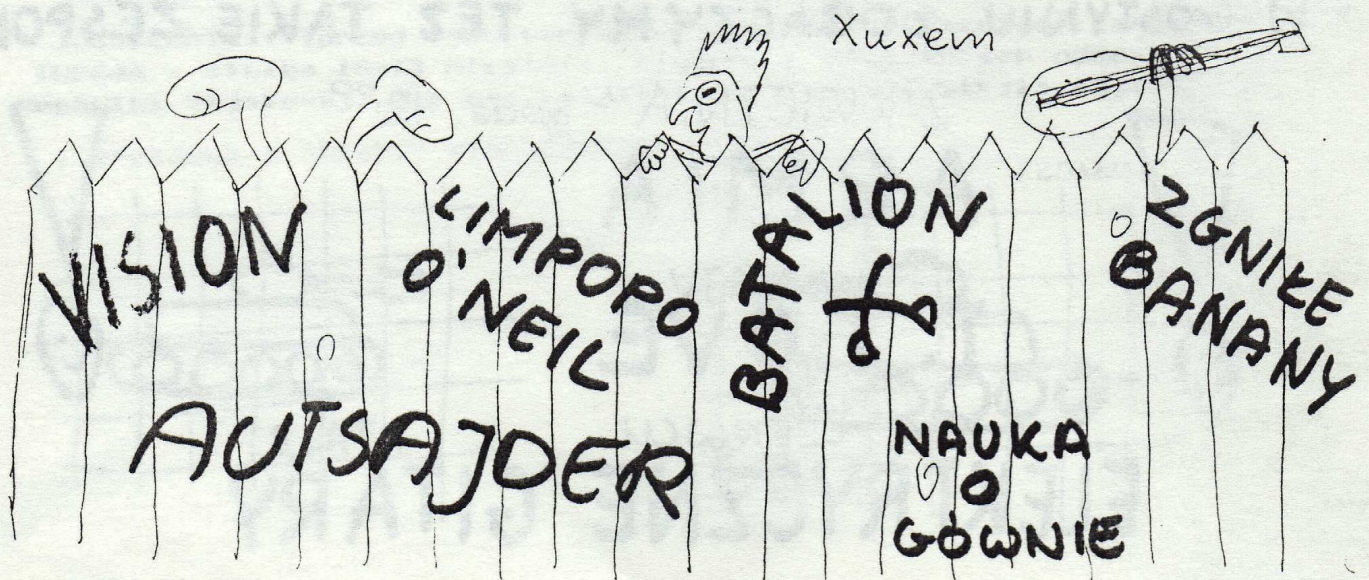 Xuxem
VISION
LIMPOPO
O'NEIL
BATALION
ZGNIŁE
BANANY
AUTSAJDER
NAUKA
O
GÓWNIE